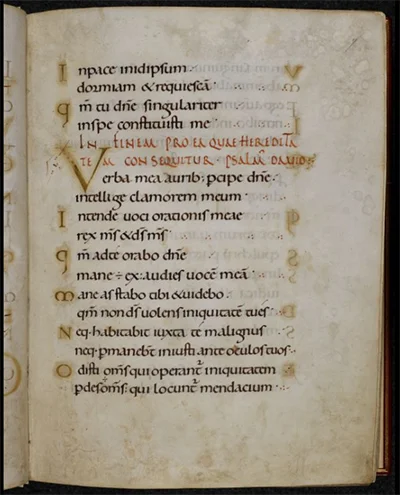 Inpace inidipsum
dormiam & requiescā
qm̄ tu dn̄e singulariter
inspe constituisti me
IN FINEM PRO EA QUAE HEREDITA
TEM CONSEQUITUR PSALM DAVID
Verba mea aurib; pcipe dn̄e
intellige clamorem meum
Intende uoci orationis meae
rex ms̄ & ds̄ ms̄
qm̄ adte orabo dn̄e
mane ÷ ex:audies uocē meā
mane asstabo tibi & uidebo
qm̄ non ds̄ uolens iniquitatē tu es
Neq; habitabit iuxta te malignus
neq; pmaneb̄t iniusti ante oculos tuos
Odisti om̄s qui operant̄ iniquitatem
pdes om̄s qui locunt̄ mendacium